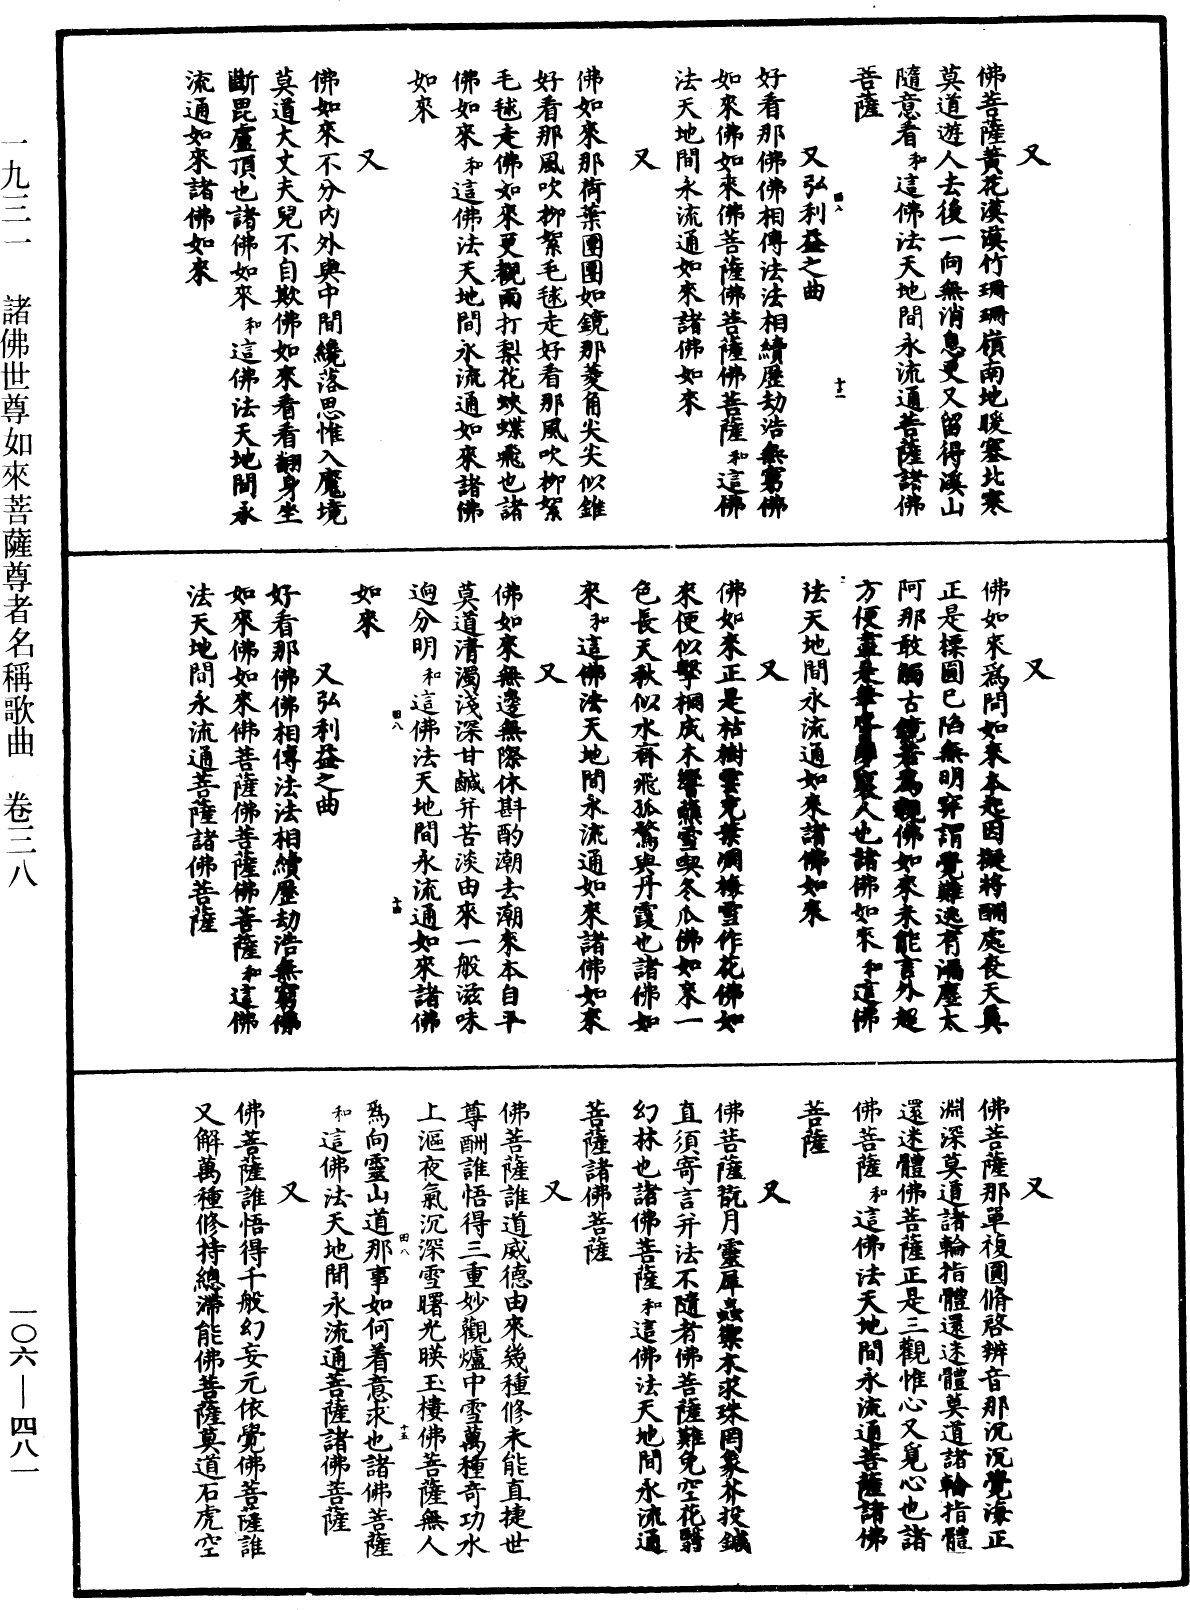 又
佛菩薩黃花漠漠竹珊珊嶺南地暖塞北寒
莫道遊人去後一向無消息更又留得溪山
隨意看和這佛法天地間永流通菩薩諸佛
菩薩
又弘利益之曲
好看那佛佛相傳法法相續歷劫浩無窮佛
如來佛如來佛菩薩佛菩薩佛菩薩和這佛
法天地間永流通如來諸佛如來
又
佛如來那荷葉團團如鏡那菱角尖尖似錐
好看那風吹柳絮毛毬走好看那風吹柳絮
毛毬走佛如來更觀雨打梨花蛺蝶飛也諸
佛如來和這佛法天地間永流通如來諸佛
如來
又
佛如來不分內外與中間纔落思惟入魔境
莫道大丈夫兒不自欺佛如來看看翻身坐
斷毘盧頂也諸佛如來和這佛法天地間永
流通如來諸佛如來
又
佛如來為問如來本起因擬將酬處喪天真
正是標圓已陷無明穽謂覺難逃有漏塵太
阿那敢觸古鏡若為觀佛如來未能言外超
方便盡是人也諸佛如來和這佛
法天地間永流通如來諸佛如來
又
佛如來正是枯樹雲充葉凋梅雪作花佛如
來便似擊桐成木響蘸雪喫冬瓜佛如來一
色長天秋似水齊飛孤騖與丹霞也諸佛如
來和這佛法天地間永流通如來諸佛如來
又
佛如來無邊無際休斟酌潮去潮來本自平
莫道清濁淺深甘鹹并苦淡由來一般滋味
逈分明和這佛法天地間永流通如來諸佛
如來
又弘利益之曲
好看那佛佛相傳法法相續歷劫浩無窮佛
如來佛如來佛菩薩佛菩薩佛菩薩和這佛
法天地間永流通菩薩諸佛菩薩
又
佛菩薩那單複圓脩啓辨音那沉沉覺海正
淵深莫道諸輪指體還迷體莫道諸輪指體
還迷體佛菩薩正是三觀惟心又覓心也諸
佛菩薩和這佛法天地間永流通菩薩諸佛
菩薩
又
佛菩薩翫月靈犀蟲禦木求珠罔象芥投鍼
直須寄言并法不隨者佛菩薩難免空花翳
幻林也諸佛菩薩和這佛法天地間永流通
菩薩諸佛菩薩
又
佛菩薩誰道威德由來幾種修未能直捷世
尊酬誰悟得三重妙觀爐中雪萬種奇功水
上漚夜氣沉深雪曙光暎玉樓佛菩薩無人
為向靈山道那事如何着意求也諸佛菩薩
和這佛法天地間永流通菩薩諸佛菩薩
又
佛菩薩誰悟得千般幻妄元依覺佛菩薩誰
又解萬種修持總滯能佛菩薩莫道石虎空
一九三一　諸佛世尊如來菩薩尊者名稱歌曲　卷三八
一〇六—四八一